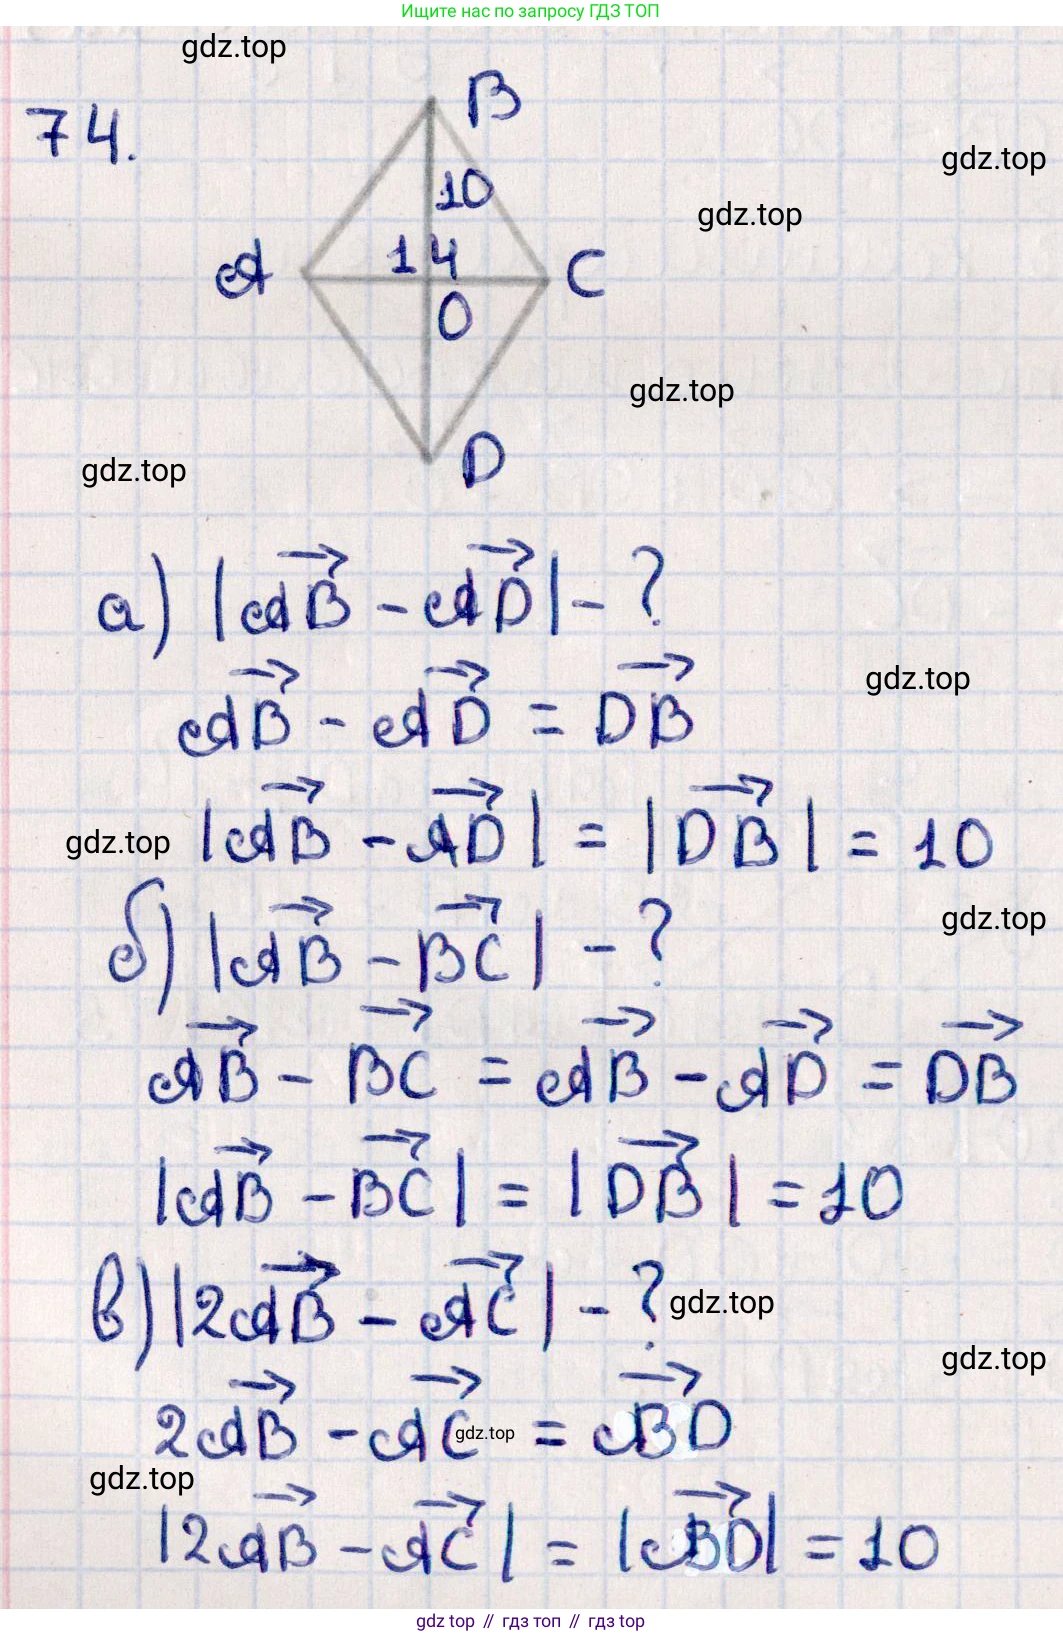 Ищите нас по запросу ГДЗ ТОП
gdz.top
74.
B
10
gdz.top
gdz.top
A
14
C
O
gdz.top
D
gdz.top
а) |AB⃗ - AD⃗| - ?
AB⃗ - AD⃗ = DB⃗
gdz.top
|AB⃗ - AD⃗| = |DB⃗| = 10
gdz.top
б) |AB⃗ - BC⃗| - ?
gdz.top
AB⃗ - BC⃗ = AB⃗ - AD⃗ = DB⃗
|AB⃗ - BC⃗| = |DB⃗| = 10
в) |2AB⃗ - AC⃗| - ?
gdz.top
gdz.top
2AB⃗ - AC⃗ = BD⃗
gdz.top
gdz.top
|2AB⃗ - AC⃗| = |BD⃗| = 10
gdz top // гдз топ // гдз top